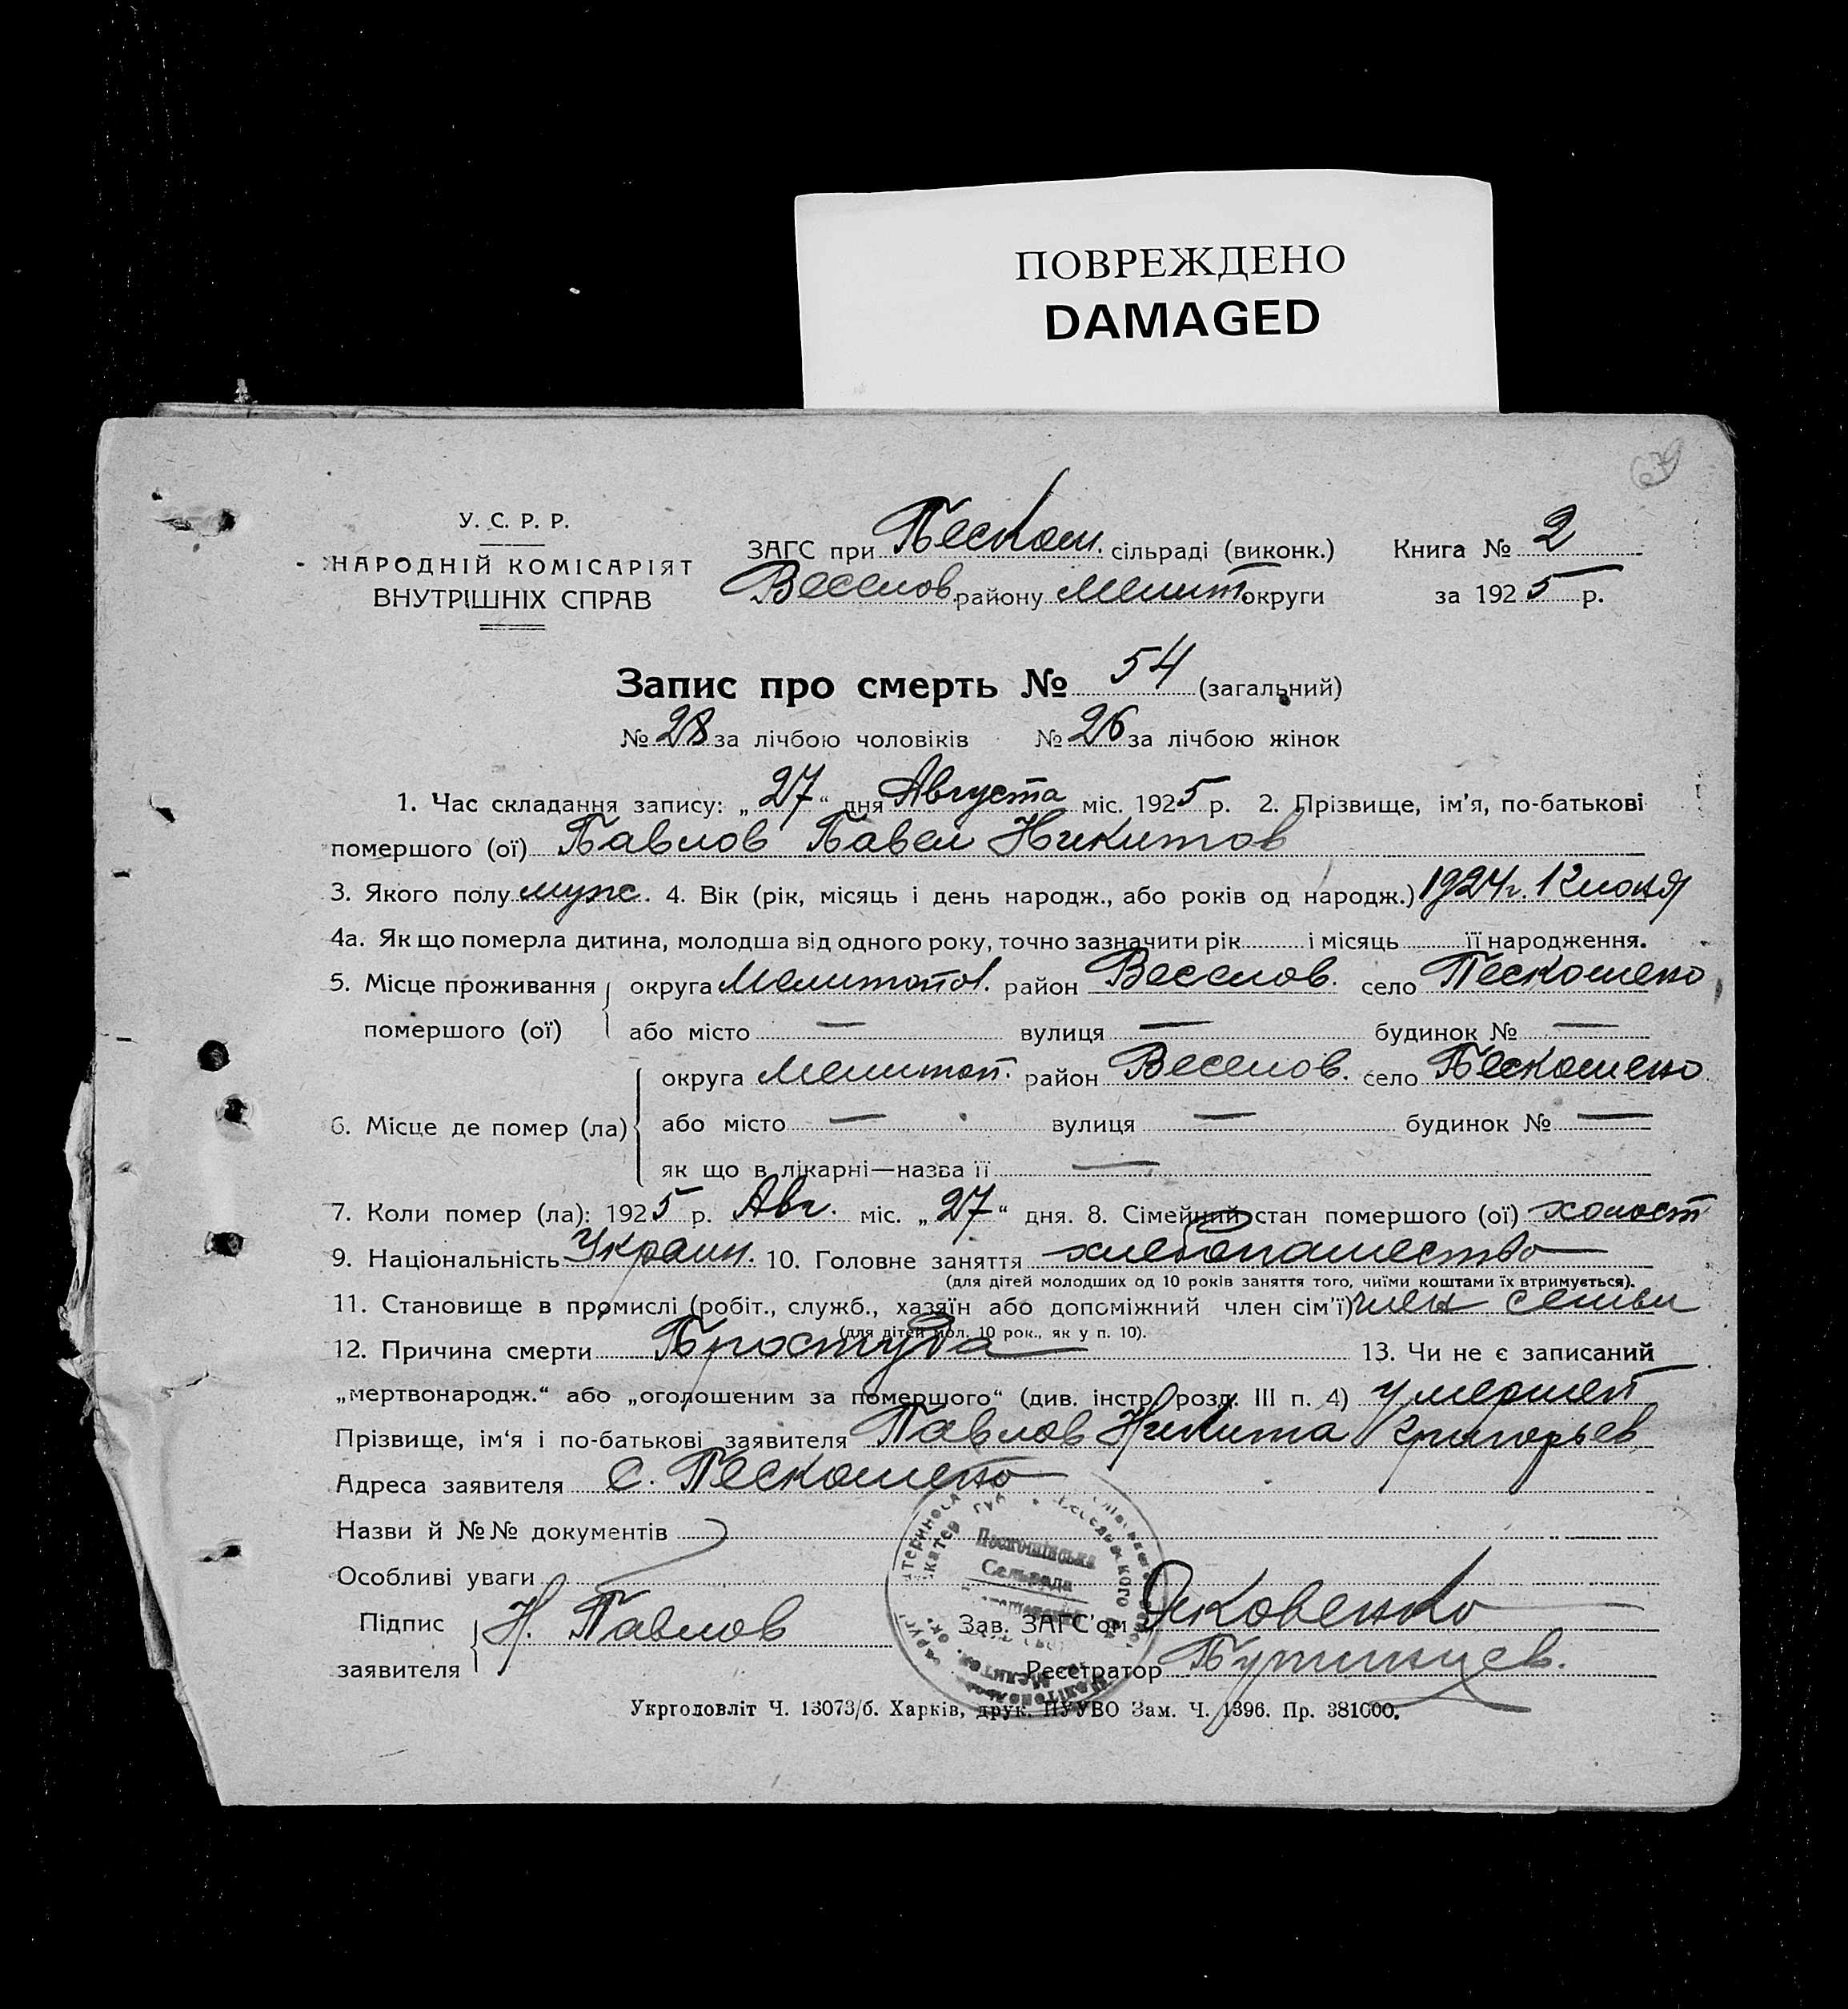 ПОВРЕЖДЕНО
DAMAGED
679
У. С. Р. Р.
НАРОДНІЙ КОМІСАРІЯТ
ВНУТРІШНІХ СПРАВ
ЗАГС при Пескош. сільраді (виконк.) Книга № 2
Веселов. району Мелит. округи за 1925 р.
Запис про смерть № 54 (загальний)
№ 28 за лічбою чоловіків № 26 за лічбою жінок
1. Час складання запису: „27“ дня Августа міс. 1925 р. 2. Прізвище, ім'я, по-батькові
помершого (ої) Павлов Павел Никитов
3. Якого полу мужс. 4. Вік (рік, місяць і день народж., або років од народж.) 1924 г. 12 июня
4а. Як що померла дитина, молодша від одного року, точно зазначити рік і місяць її народження.
5. Місце проживання помершого (ої) округа Мелитопол. район Веселов. село Пескошено
або місто — вулиця — будинок № —
6. Місце де помер (ла) округа Мелитоп. район Веселов. село Пескошено
або місто — вулиця — будинок № —
як що в лікарні—назва її —
7. Коли помер (ла): 1925 р. Авг. міс. „27“ дня. 8. Сімейний стан помершого (ої) холост
9. Національність Украин. 10. Головне заняття хлебопашество
(для дітей молодших од 10 років заняття того, чиїми коштами їх втримується).
11. Становище в промислі (робіт., служб., хазяїн або допоміжний член сім'ї) член семьи
(для дітей мол. 10 рок., як у п. 10).
12. Причина смерти Простуда 13. Чи не є записаний
„мертвонародж.“ або „оголошеним за помершого“ (див. інстр. розд. III п. 4) умерший
Прізвище, ім'я і по-батькові заявителя Павлов Никита Григорьев
Адреса заявителя с. Пескошено
Назви й №№ документів
Особливі уваги
Підпис заявителя Н. Павлов Зав. ЗАГС'ом Яковенко
Реєстратор
Пескошінська
Сельрада
Укрголовліт Ч. 13073/б. Харків, друк. ПУУВО Зам. Ч. 1396. Пр. 381000.